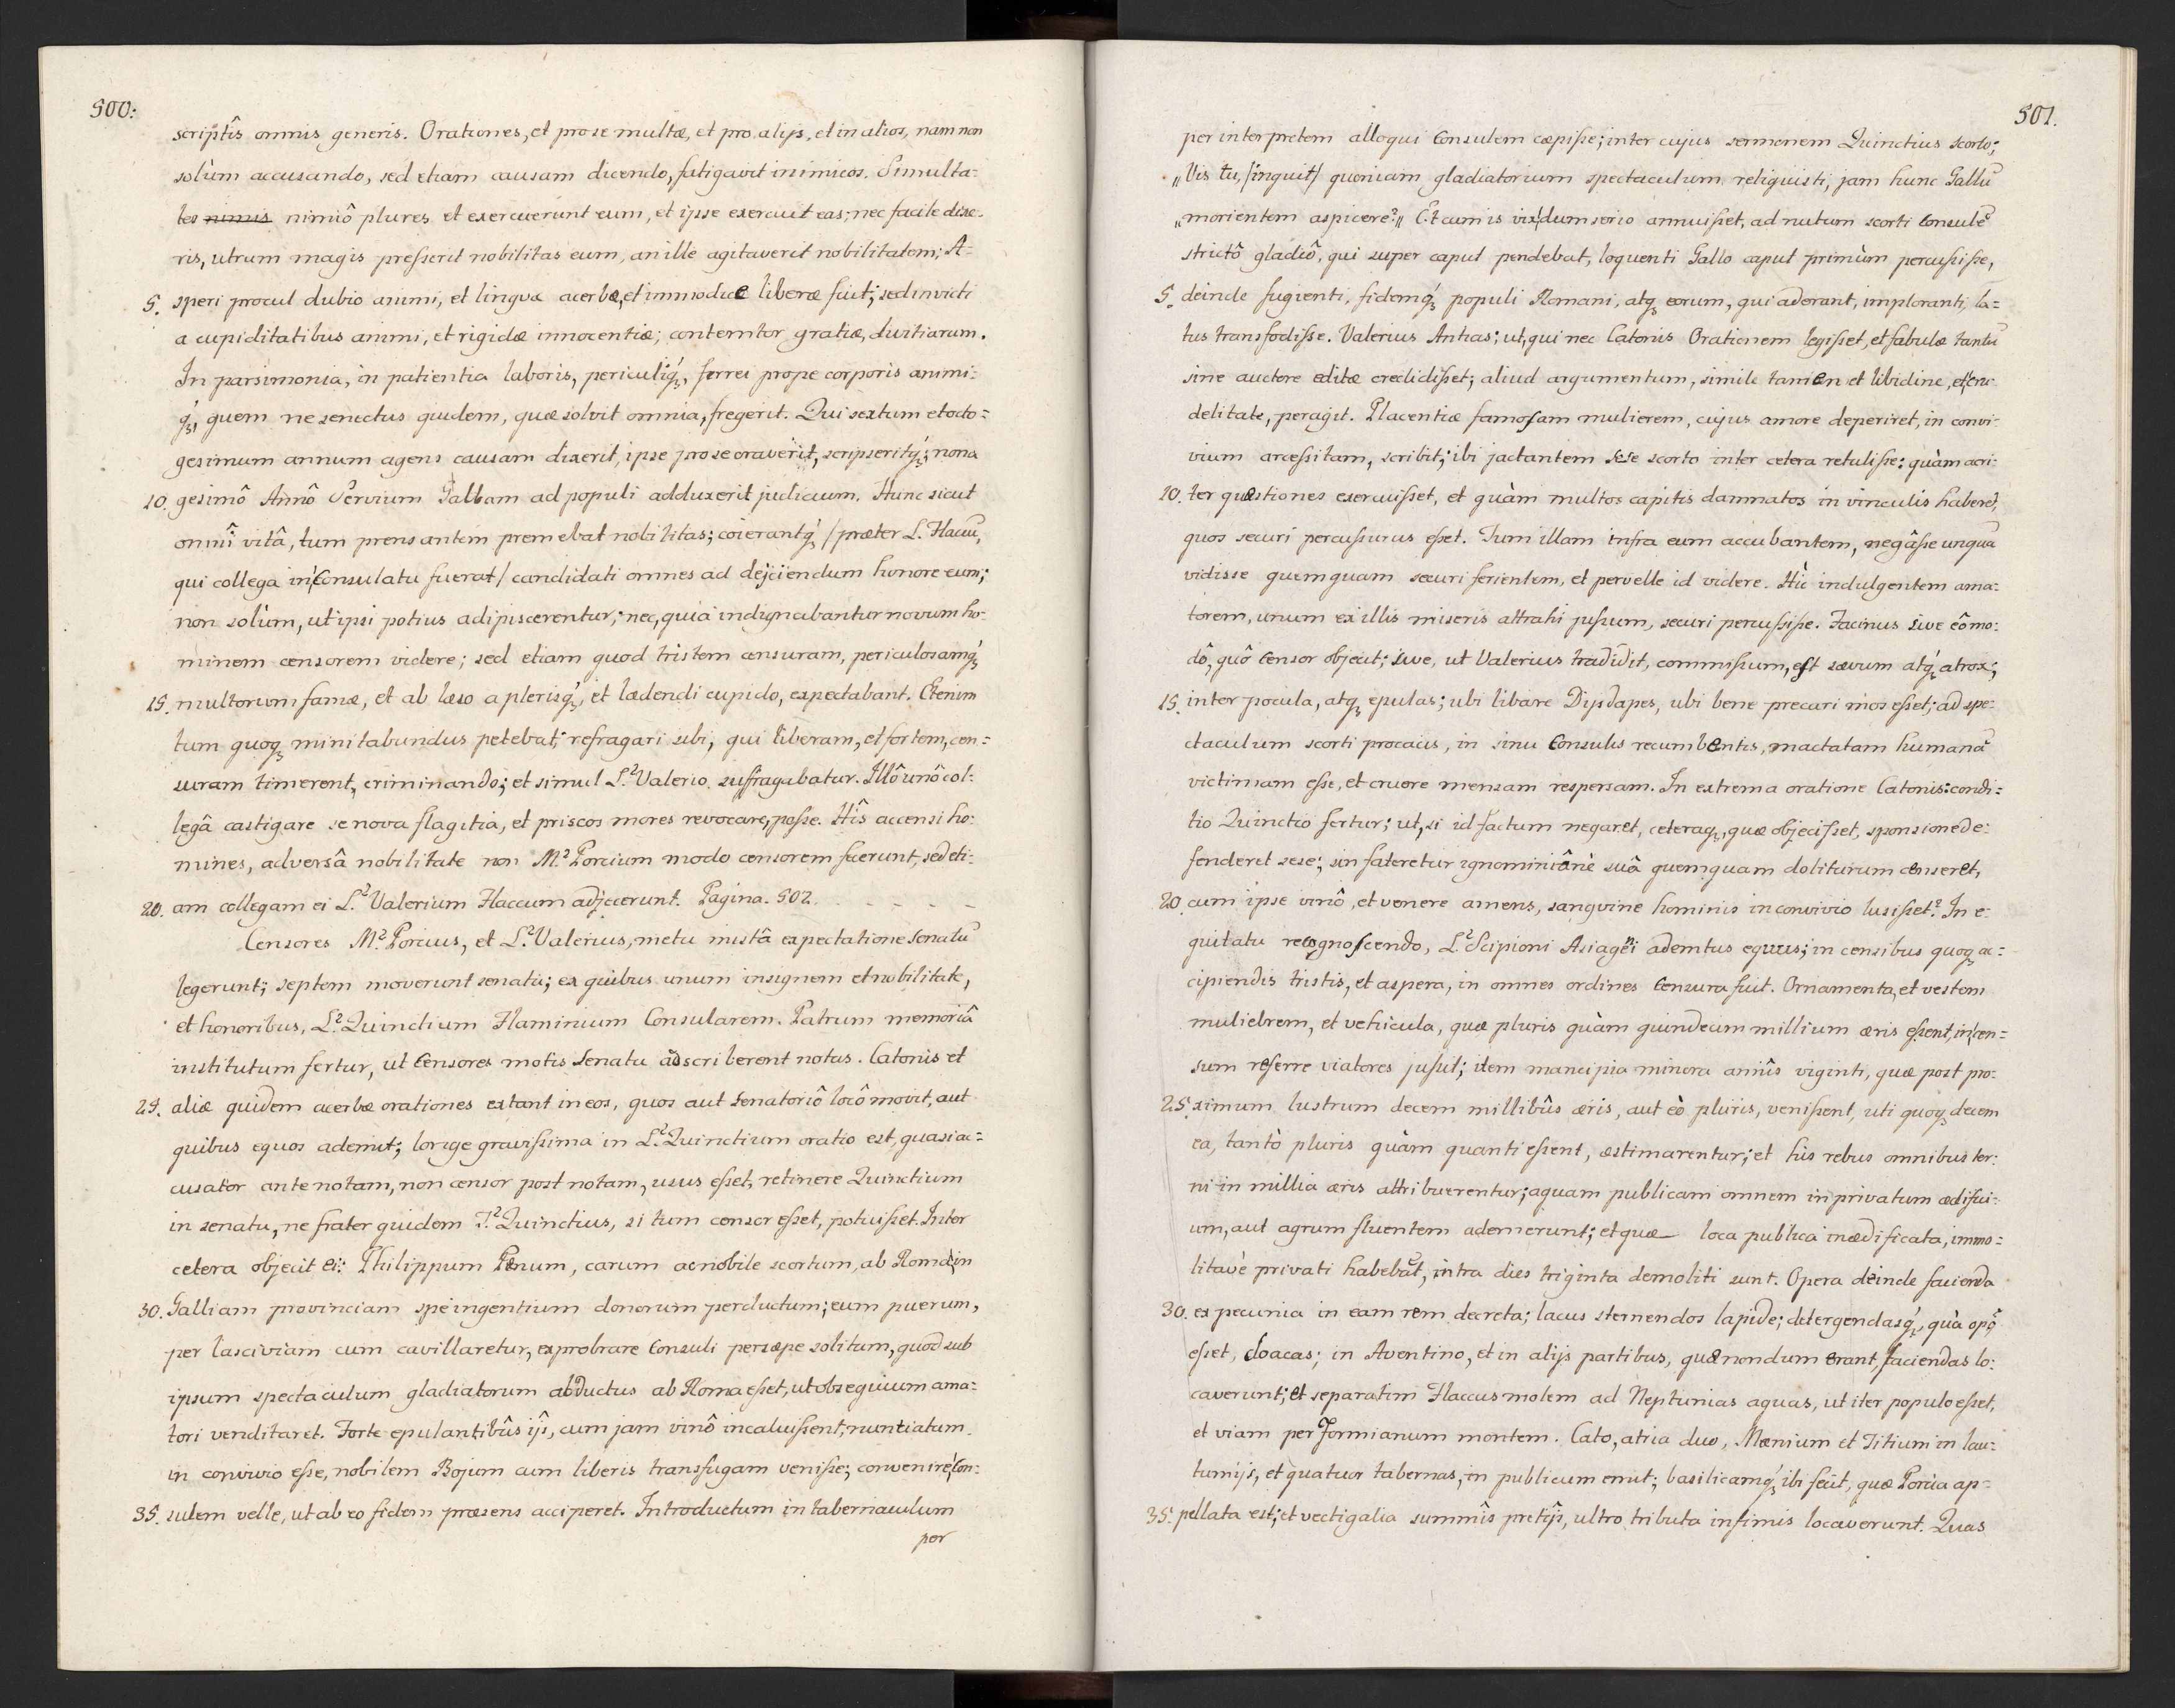 500:
scriptîs omnis generis. Orationes, et pro se multæ, et pro alijs, et in alios, nam non
solùm accusando, sed etiam causam dicendo, fatigavit inimicos. Simulta-
tes nimis nimiô plures et exercuerunt eum, et ipse exercuit eas; nec facile dixe-
ris, utrum magis presserit nobilitas eum, an ille agitaverit nobilitatem; A-
5. speri procul dubio animi, et linguæ acerbæ, et immodicè liberæ fuit; sed invicti
a cupiditatibus animi, et rigidæ innocentiæ; contemtor gratiæ, divitiarum.
In parsimonia, in patientia laboris, periculiq́ꝫ, ferrei prope corporis animi-
q́ꝫ, quem ne senectus quidem, quæ solvit omnia, fregerit. Qui sextum et octo=
gesimum annum agens causam dixerit, ipse pro se oraverit, scripseritq́ꝫ; nona
10. gesimô Annô Servium Galbam ad populi adduxerit judicium. Hunc sicut
omni vitâ, tum prensantem premebat nobilitas; coierantq́ꝫ /præter L. Flaccū,
qui collega in Consulatu fuerat/ candidati omnes ad dejiciendum honore eum;
non solùm, ut ipsi potius adipiscerentur; nec, quia indignabantur novum ho-
minem censorem videre; sed etiam quod tristem censuram, periculosamq́ꝫ
15. multorum famæ, et ab læso a plerisq́ꝫ, et lædendi cupido, expectabant. Etenim
tum quoqꝫ minitabundus petebat; refragari sibi, qui liberam, et fortem, cen=
suram timerent, criminando; et simul L.² Valerio suffragabatur. Illô unô col-
legâ castigare se nova flagitia, et priscos mores revocare, posse. Hîs accensi ho-
mines, adversâ nobilitate non M.² Porcium modo censorem fecerunt, sed eti-
20. am collegam ei L.² Valerium Flaccum adjecerunt. Pagina. 502. - - - -
Censores M.² Porcius, et L.² Valerius, metu mistâ expectatione Senatū
legerunt; septem moverunt senatu; ex quibus unum insignem et nobilitate,
et honoribus, L.² Quinctium Flaminium Consularem. Patrum memoriâ
institutum fertur, ut Censores motis Senatu adscriberent notas. Catonis et
25. aliæ quidem acerbæ orationes extant in eos, quos aut Senatoriô locô movit, aut
quibus equos ademit; longe gravissima in L.² Quinctium oratio est, quasi ac=
cusator ante notam, non censor post notam, usus esset, retinere Quinctium
in senatu, ne frater quidem T.² Quinctius, si tum censor esset, potuisset. Inter
cetera objecit ei: Philippum Pœnum, carum ac nobile scortum, ab Roma in
30. Galliam provinciam spe ingentium donorum perductum; eum puerum,
per lasciviam cum cavillaretur, exprobrare Consuli persæpe solitum, quod sub
ipsum spectaculum gladiatorum abductus ab Roma esset, ut obsequium ama-
tori venditaret. Forte epulantibûs ijs, cum jam vinô incaluissent, nuntiatum
in convivio esse, nobilem Bojum cum liberis transfugam venisse; convenire Con-
35. sulem velle, ut ab eo fidem præsens acciperet. Introductum in tabernaculum
per
501.
per interpretem alloqui Consulem cæpisse; inter cujus sermonem Quinctius scorto;
„Vis tu, /inquit/ quoniam gladiatorium spectaculum reliquisti, jam hunc Gallū
„morientem aspicere?„ Et cum is vixdum serio annuisset, ad nutum scorti Consulē
strictô gladiô, qui super caput pendebat, loquenti Gallo caput primùm percussisse,
5. deinde fugienti, fidemq́ꝫ populi Romani, atqꝫ eorum, qui aderant, imploranti, la=
tus transfodisse. Valerius Antias; ut, qui nec Catonis Orationem legisset, et fabulæ tantū
sine auctore editæ credidisset; aliud argumentum, simile tamen et libidine, et cru-
delitate, peragit. Placentiæ famosam mulierem, cujus amore deperiret, in convi-
vium arcessitam, scribit; ibi jactantem sese scorto inter cetera retulisse: quàm acri-
10. ter quæstiones exercuisset, et quàm multos capitis damnatos in vinculis haberet,
quos securi percussurus esset. Tum illam infra eum accubantem, negâsse unquā
vidisse quemquam securi ferientem, et pervelle id videre. Hìc indulgentem ama-
torem, unum ex illis miseris attrahi jussum, securi percussisse. Facinus sive eô mo-
dô, quô Censor objecit; sive, ut Valerius tradidit, commissum, est sævum atq́ꝫ atrox;
15. inter pocula, atqꝫ epulas; ubi libare Dijs dapes, ubi bene precari mos esset; ad spe-
ctaculum scorti procacis, in sinu Consulis recumbentis, mactatam humanā
victimam esse, et cruore mensam respersam. In extrema oratione Catonis: condi=
tio Quinctio fertur; ut, si id factum negaret, ceteraqꝫ, quæ objecisset, sponsione de-
fenderet sese; sin fateretur ignominiâne suâ quemquam doliturum censeret,
20. cum ipse vinô, et venere amens, sanguine hominis in convivio lusisset? In e-
quitatu recognoscendo, L.² Scipioni Asiageni ademtus equus; in censibus quoqꝫ ac=
cipiendis tristis, et aspera, in omnes ordines Censura fuit. Ornamenta, et vestem
muliebrem, et vehicula, quæ pluris quàm quindecim millium æris essent, in cen=
sum referre viatores jussit; item mancipia minora annîs viginti, quæ post pro-
25. ximum lustrum decem millibûs æris, aut eò pluris, venissent, uti quoqꝫ decem
ea, tantò pluris quàm quanti essent, æstimarentur; et his rebus omnibus ter-
ni in millia æris attribuerentur; aquam publicam omnem in privatum ædifici-
um, aut agrum fluentem ademerunt; et quæ loca publica inædificata, immo=
litavè privati habebāt, intra dies triginta demoliti sunt. Opera deinde facienda
30. ex pecunia in eam rem decreta; lacus sternendos lapide; detergendasq́ꝫ, quà opꝰ
esset, cloacas; in Aventino, et in alijs partibus, quæ nondum erant, faciendas lo-
caverunt; et separatim Flaccus molem ad Neptunias aquas, ut iter populo esset,
et viam per Formianum montem. Cato, atria duo, Mænium et Titium in lau-
tumijs, et quatuor tabernas, in publicum emit; basilicamq́ꝫ ibi fecit, quæ Porcia ap=
35. pellata est; et vectigalia summîs pretijs, ultro tributa infimis locaverunt. Quas